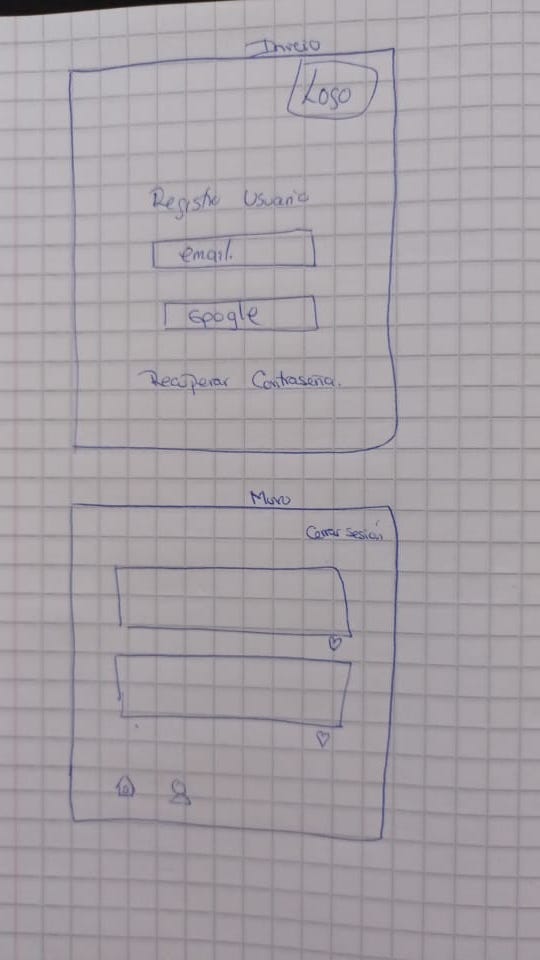 Inicio
Logo
Registro Usuario
email.
Google
Recuperar Contraseña.
Muro
Cerrar sesión